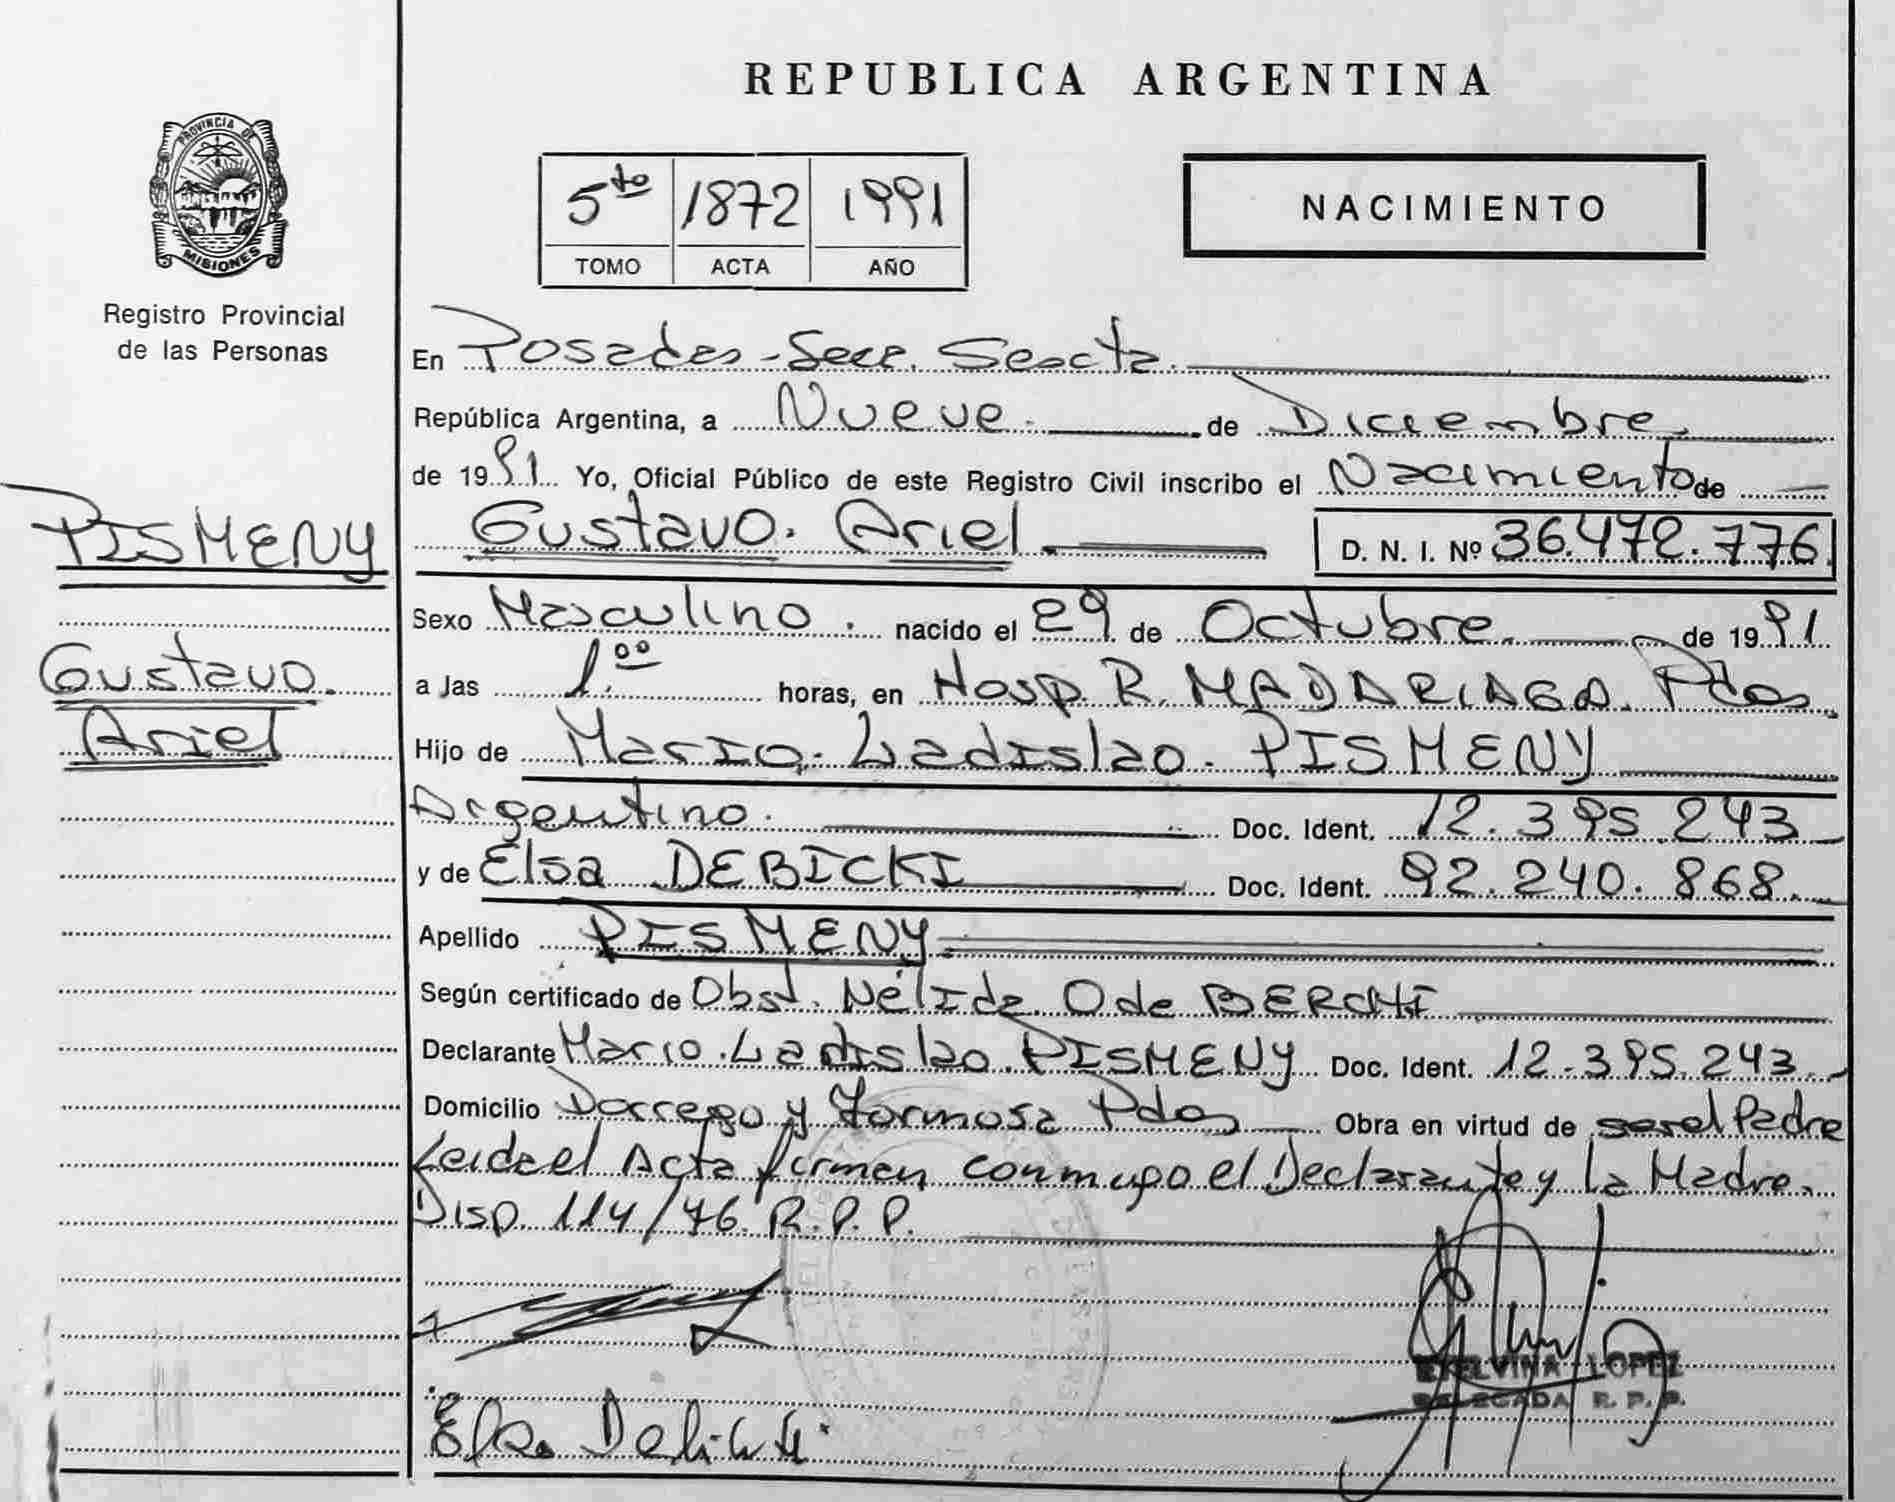 REPUBLICA ARGENTINA
PROVINCIA DE
MISIONES
Registro Provincial
de las Personas
5to 1872 1991
TOMO ACTA AÑO
NACIMIENTO
En Posadas - Secc. Sexta.
República Argentina, a Nueve. de Diciembre.
de 1991. Yo, Oficial Público de este Registro Civil inscribo el Nacimiento de
Gustavo. Ariel. D. N. I. Nº 36.472.776
PISMENY
Gustavo.
Ariel
Sexo Masculino. nacido el 29 de Octubre. de 1991
a las 1.00 horas, en Hosp. R. MADARIAGA. Pdas.
Hijo de Mario. Ladislao. PISMENY
Argentino. Doc. Ident. 12.395.243
y de Elsa DEBICKI Doc. Ident. 92.240.868.
Apellido PISMENY
Según certificado de Obst. Nélida O de BERCHI
Declarante Mario. Ladislao. PISMENY Doc. Ident. 12.395.243.
Domicilio Dorrego y Formosa Pdas Obra en virtud de ser el Padre
Leida el Acta firman conmigo el Declarante y la Madre.
Disp. 114/76. R.P.P.
ELVINA LOPEZ
DELEGADA R. P. P.
Elsa Debicki